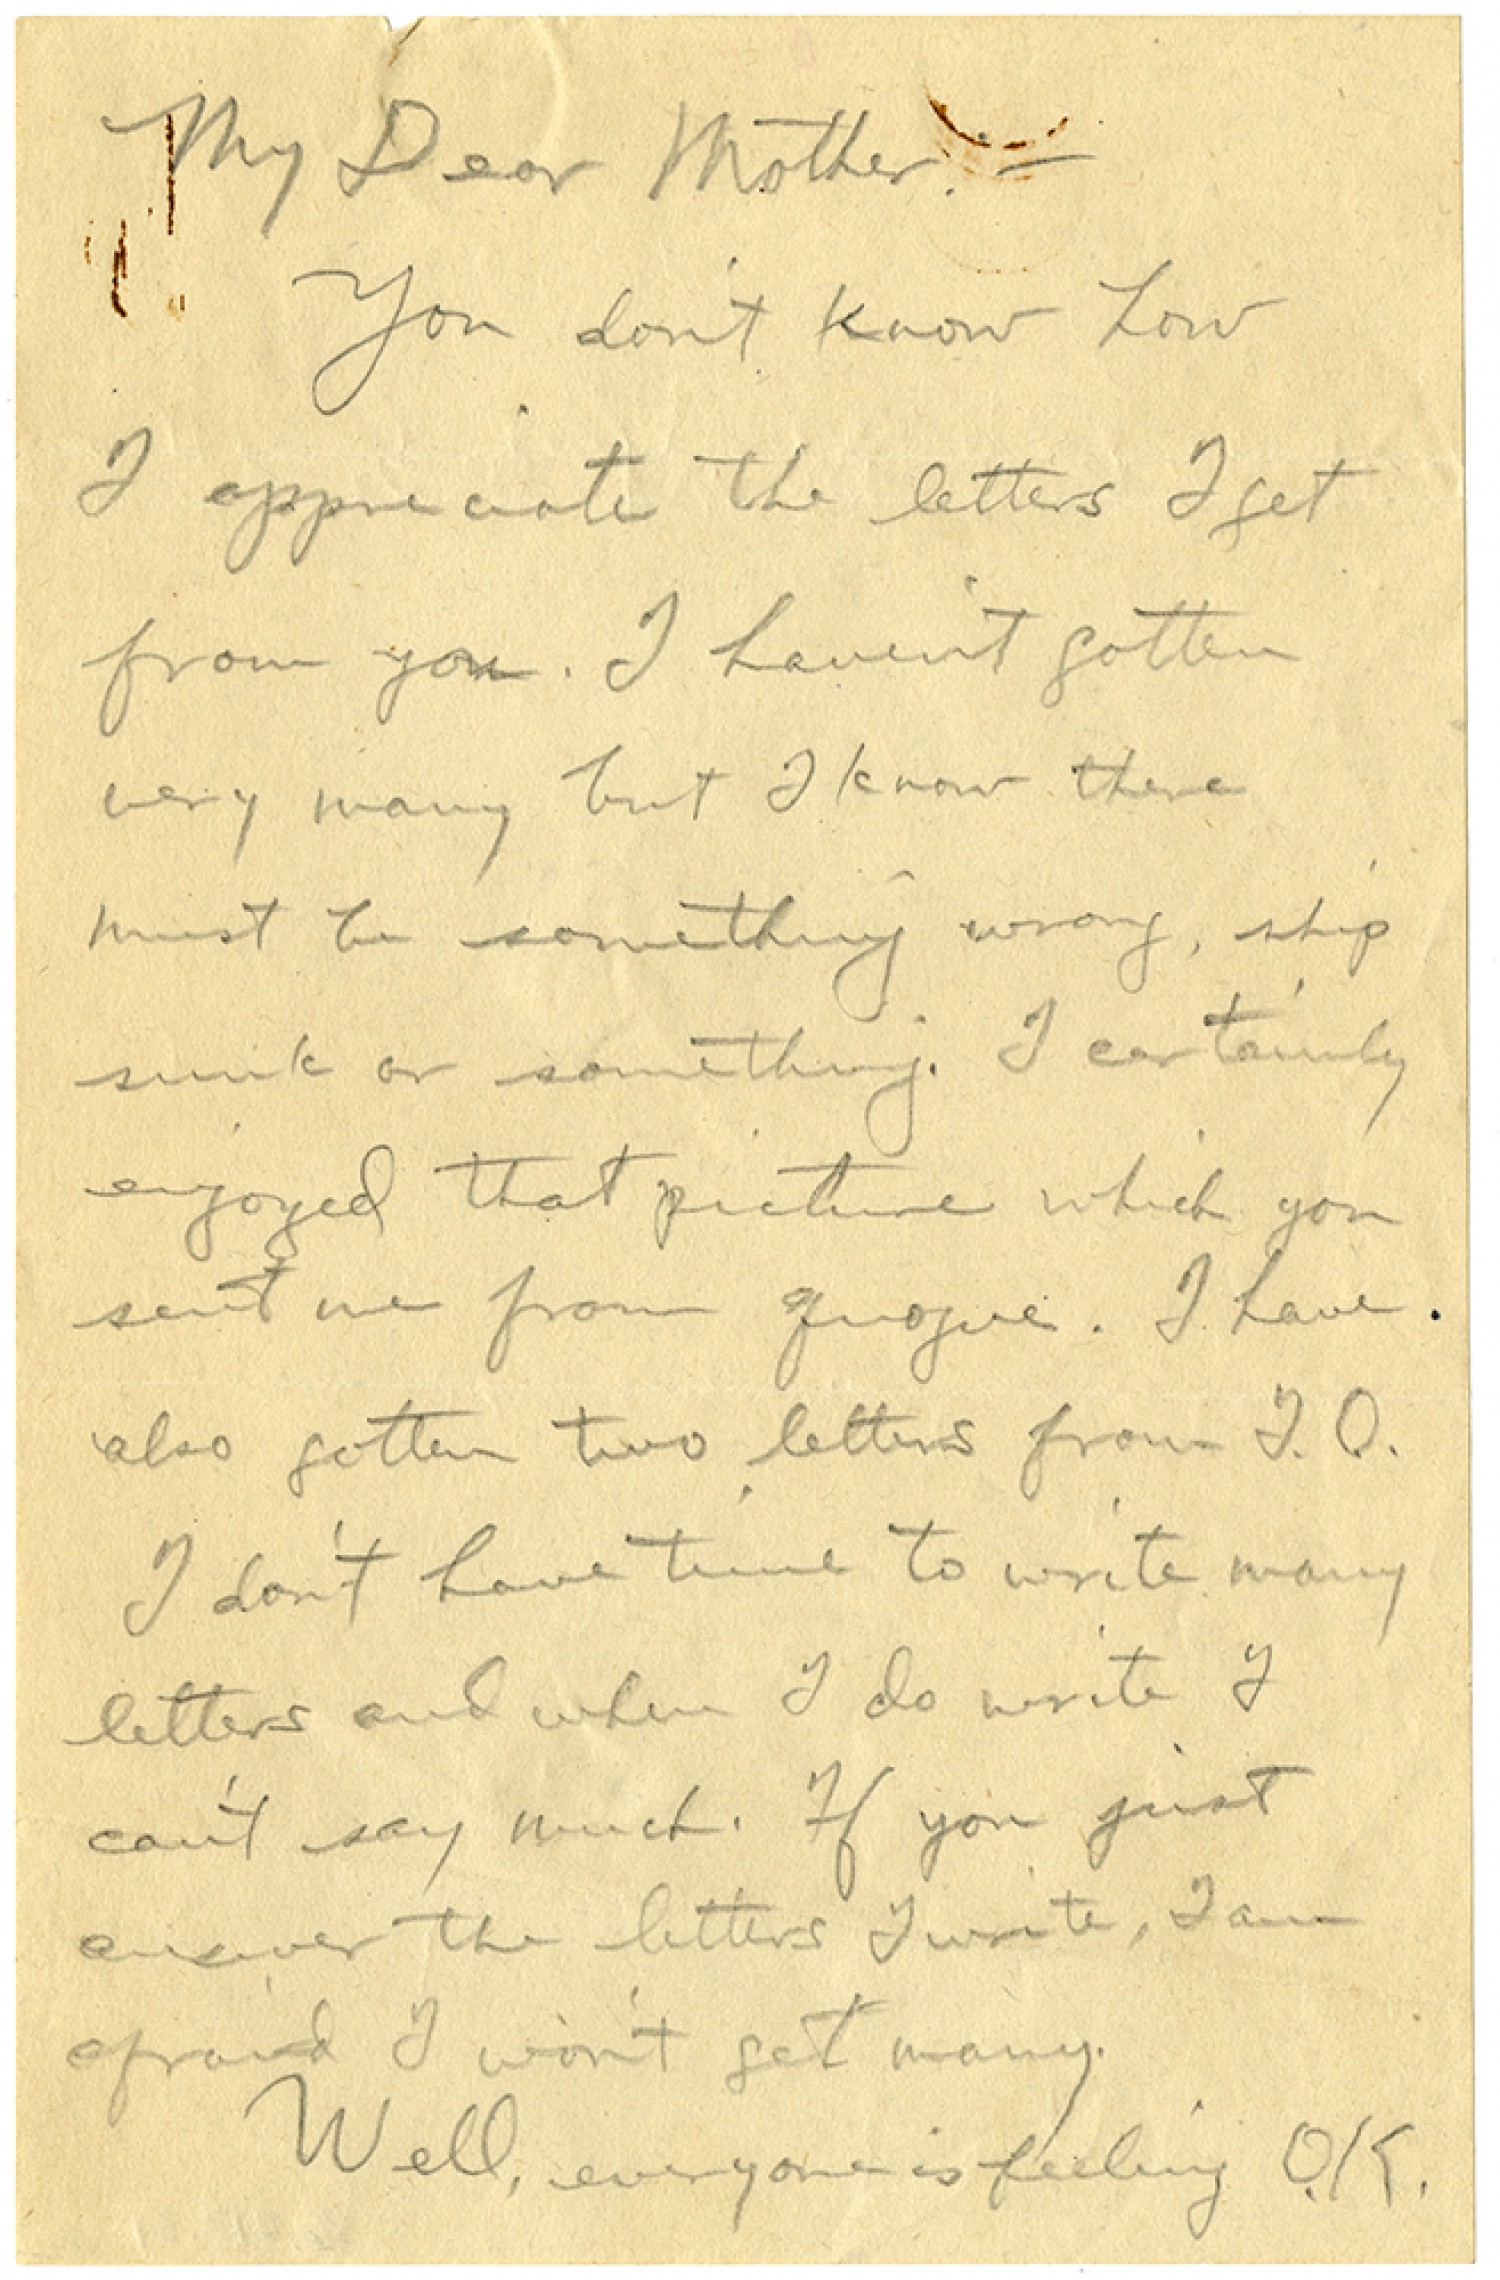 My Dear Mother. —
You don't know how
I appreciate the letters I get
from you. I haven't gotten
very many but I know there
must be something wrong, ship
sunk or something. I certainly
enjoyed that picture which you
sent me from Quogue. I have
also gotten two letters from I.O.
I don't have time to write many
letters and when I do write I
can't say much. If you just
answer the letters I write, I am
afraid I won't get many.
Well, everyone is feeling O.K.